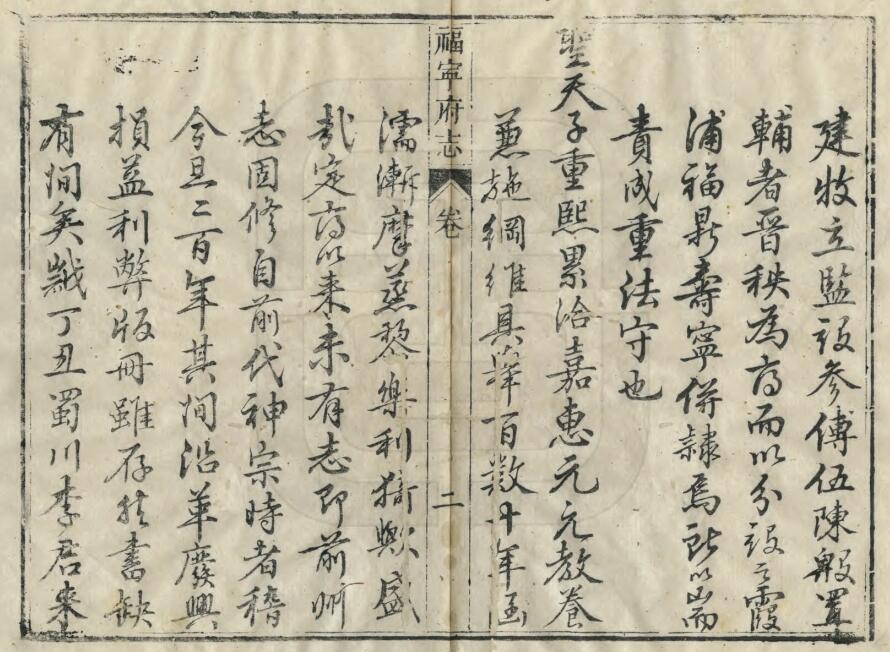 建牧立監設參傅伍陳殷置
輔者晉秩為府而以分設之霞
浦福鼎壽寧併隸焉所以崇
責成重法守也
聖天子重熙累洽嘉惠元元教養
兼施綱維具舉百數十年函
福寧府志
卷
二
濡漸摩蒸黎樂利猗歟盛
哉定府以來未有志即前州
志固修自前代神宗時者稽
今且二百年其間沿革廢興
損益利弊版冊雖存然書缺
有間矣歲丁丑蜀川李君來